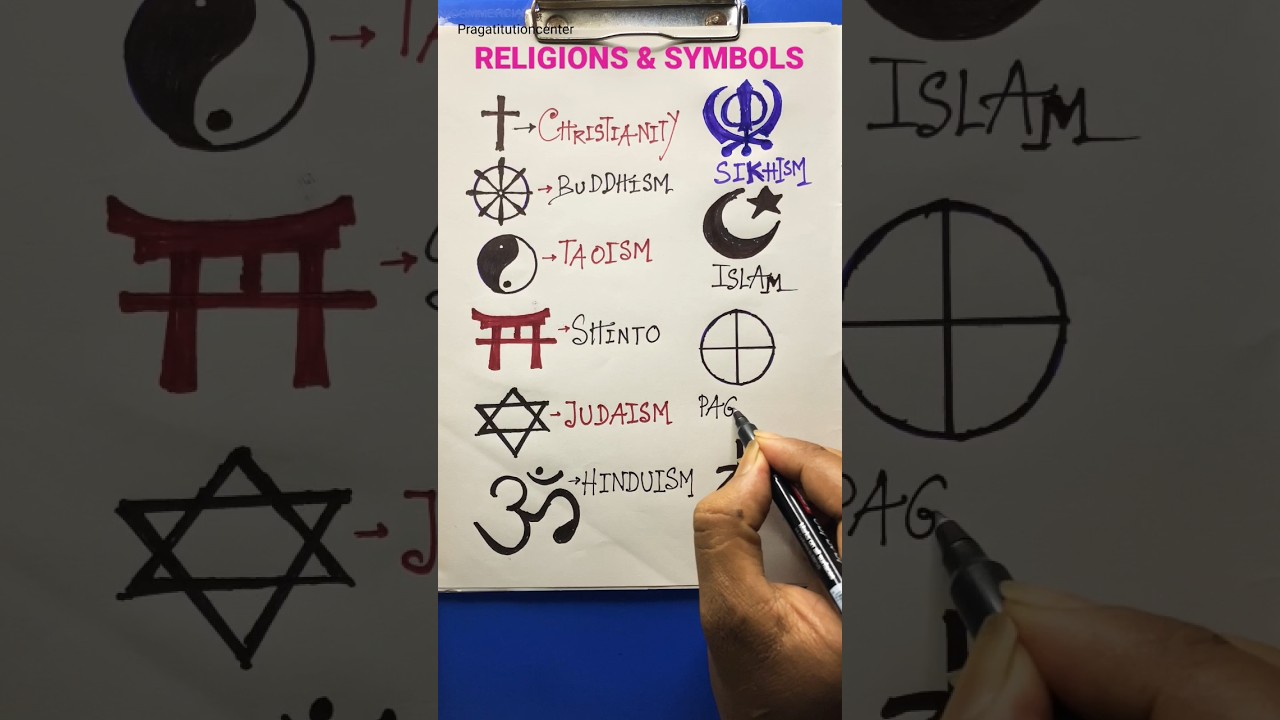 Pragatitutioncenter
RELIGIONS & SYMBOLS
CHRISTIANITY
BUDDHISM
TAOISM
SHINTO
JUDAISM
HINDUISM
SIKHISM
ISLAM
PAG
ISLAM
PAG